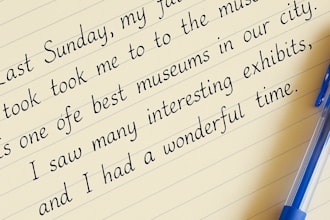 Last Sunday, my fa
took took me to to the muse
is one ofe best museums in our city.
I saw many interesting exhibits,
and I had a wonderful time.